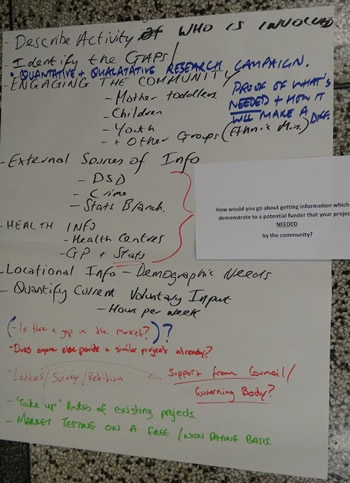 - Describe Activity of WHO IS INVOLVED
- Identify the GAPS/
• QUANTATIVE + QUALATATIVE RESEARCH CAMPAIGN.
- ENGAGING THE COMMUNITY
PROOF OF WHAT'S
NEEDED + HOW IT
WILL MAKE A DIFF.
- Mother toddlers
- Children
- Youth
- + Other Groups (Ethnic Min.)
- External Sources of Info
- DSD
- Crime
- Stats Branch.
How would you go about getting information which
demonstrate to a potential funder that your proje
NEEDED
by the community?
- HEALTH INFO
- Health Centres
- GP + Stats
- Locational Info - Demographic Needs
- Quantify Current Voluntary Input
- Hours per week
(- Is there a gap in the market?)?
- Does anyone else provide a similar project already?
- Letters/Survey/Petition
Support from Council/
Governing Body?
- "Take up" Rates of existing projects
- MARKET TESTING ON A FREE / NON PAYING BASIS.